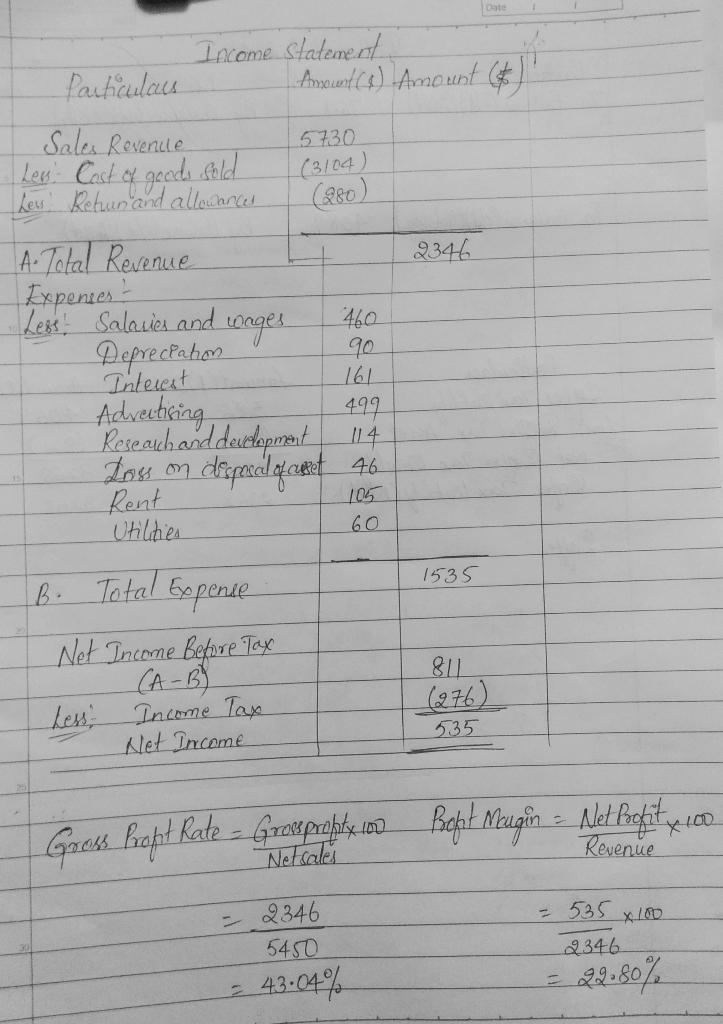 Date
Income Statement
Particulars Amount ($) Amount ($)
Sales Revenue 5730
Less:- Cost of goods sold (3104)
Less: Return and allowances (280)
A. Total Revenue 2346
Expenses:-
Less: Salaries and wages 460
Depreciation 90
Interest 161
Advertising 499
Research and development 114
Loss on disposal of asset 46
Rent 105
Utilities 60
B. Total Expense 1535
Net Income Before Tax
(A-B) 811
Less: Income Tax (276)
Net Income 535
25
Gross Profit Rate = Gross profit x 100 Profit Margin = Net Profit x 100
Net sales Revenue
= 2346 = 535 x 100
30
5450 2346
= 43.04% = 22.80%